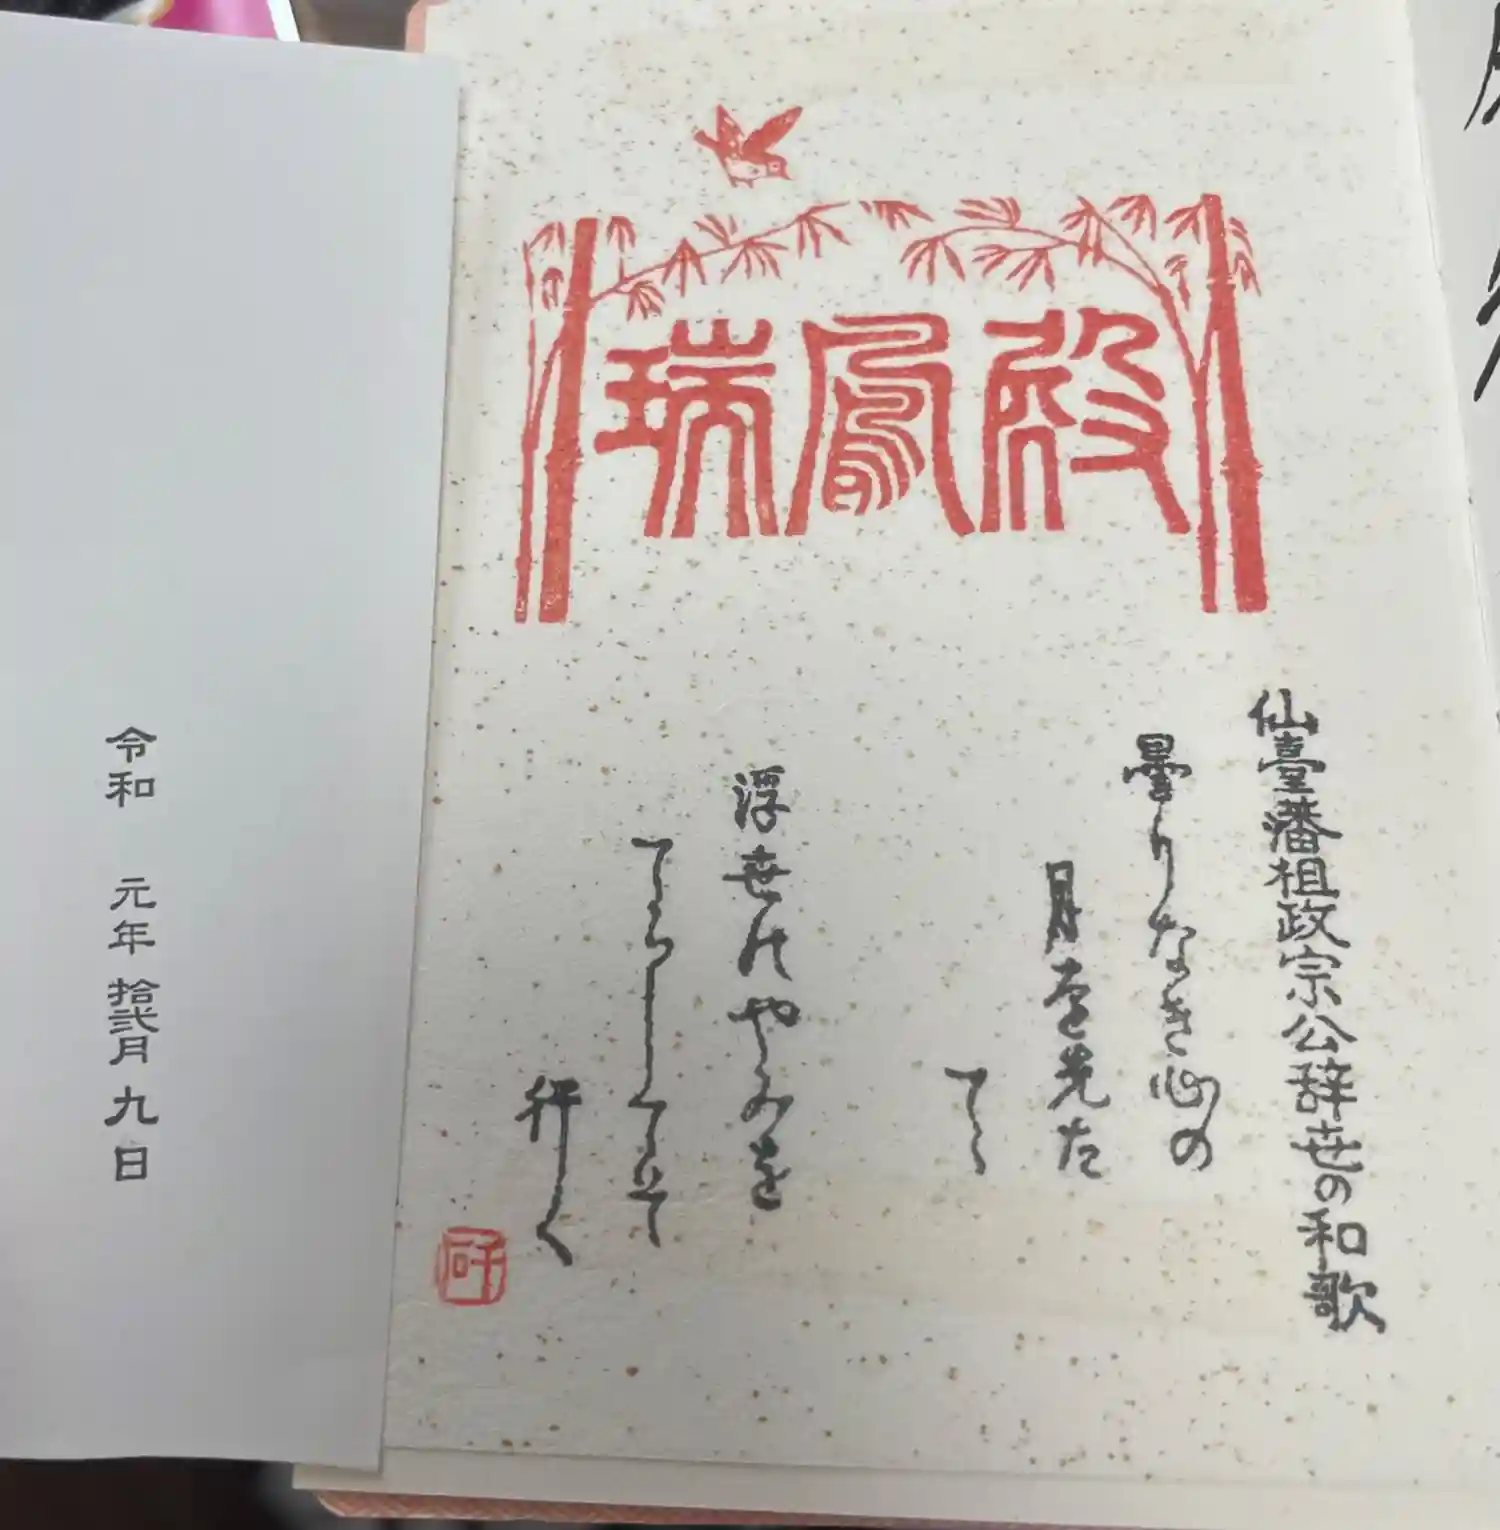 瑞鳳殿
仙臺藩祖政宗公辞世の和歌
曇りなき心の
月を先た
てゝ
浮世のやみを
てらしてぞ
行く
令和 元年 拾弐月 九日